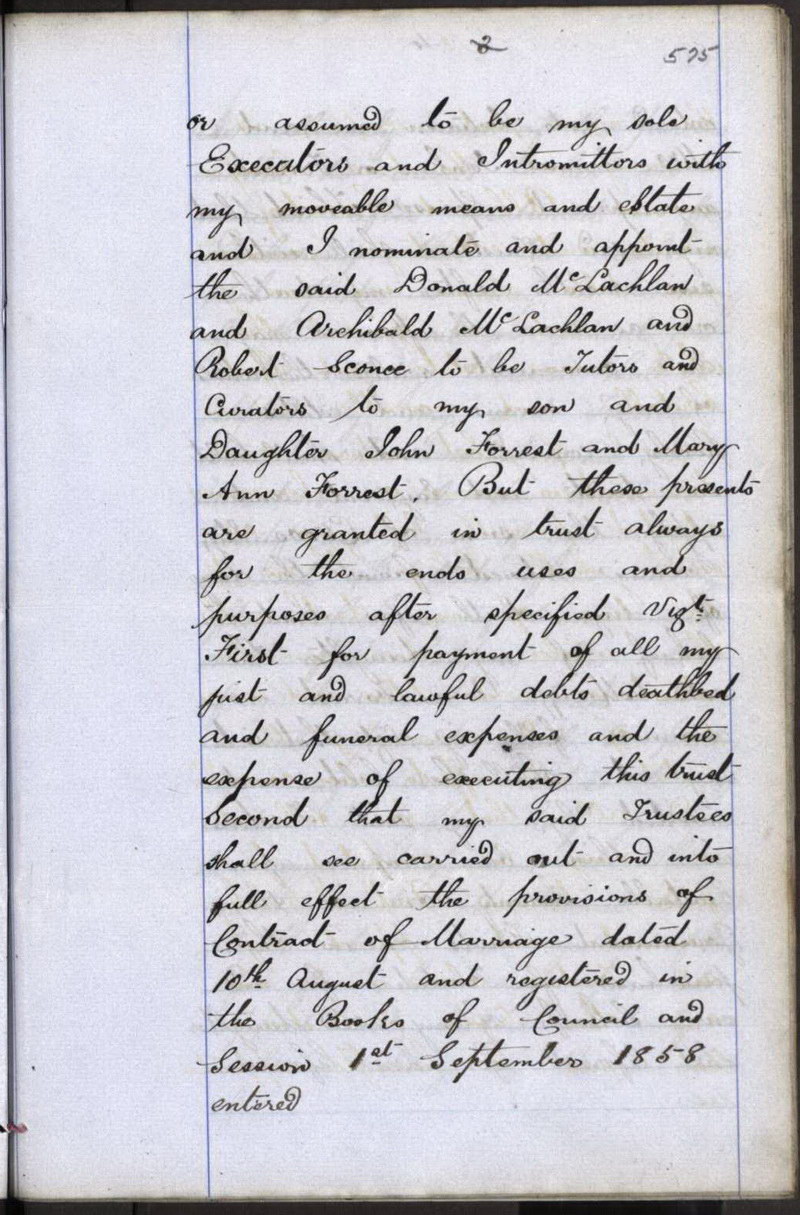 2
575
or assumed to be my sole
Executors and Intromittors with
my moveable means and Estate
and I nominate and appoint
the said Donald McLachlan
and Archibald McLachlan and
Robert Sconce to be Tutors and
Curators to my son and
Daughter John Forrest and Mary
Ann Forrest. But these presents
are granted in trust always
for the ends uses and
purposes after specified Vizt.
First for payment of all my
just and lawful debts deathbed
and funeral expenses and the
expense of executing this trust
Second that my said Trustees
shall see carried out and into
full effect the provisions of
Contract of Marriage dated
10th August and registered in
the Books of Council and
Session 1st September 1858
entered